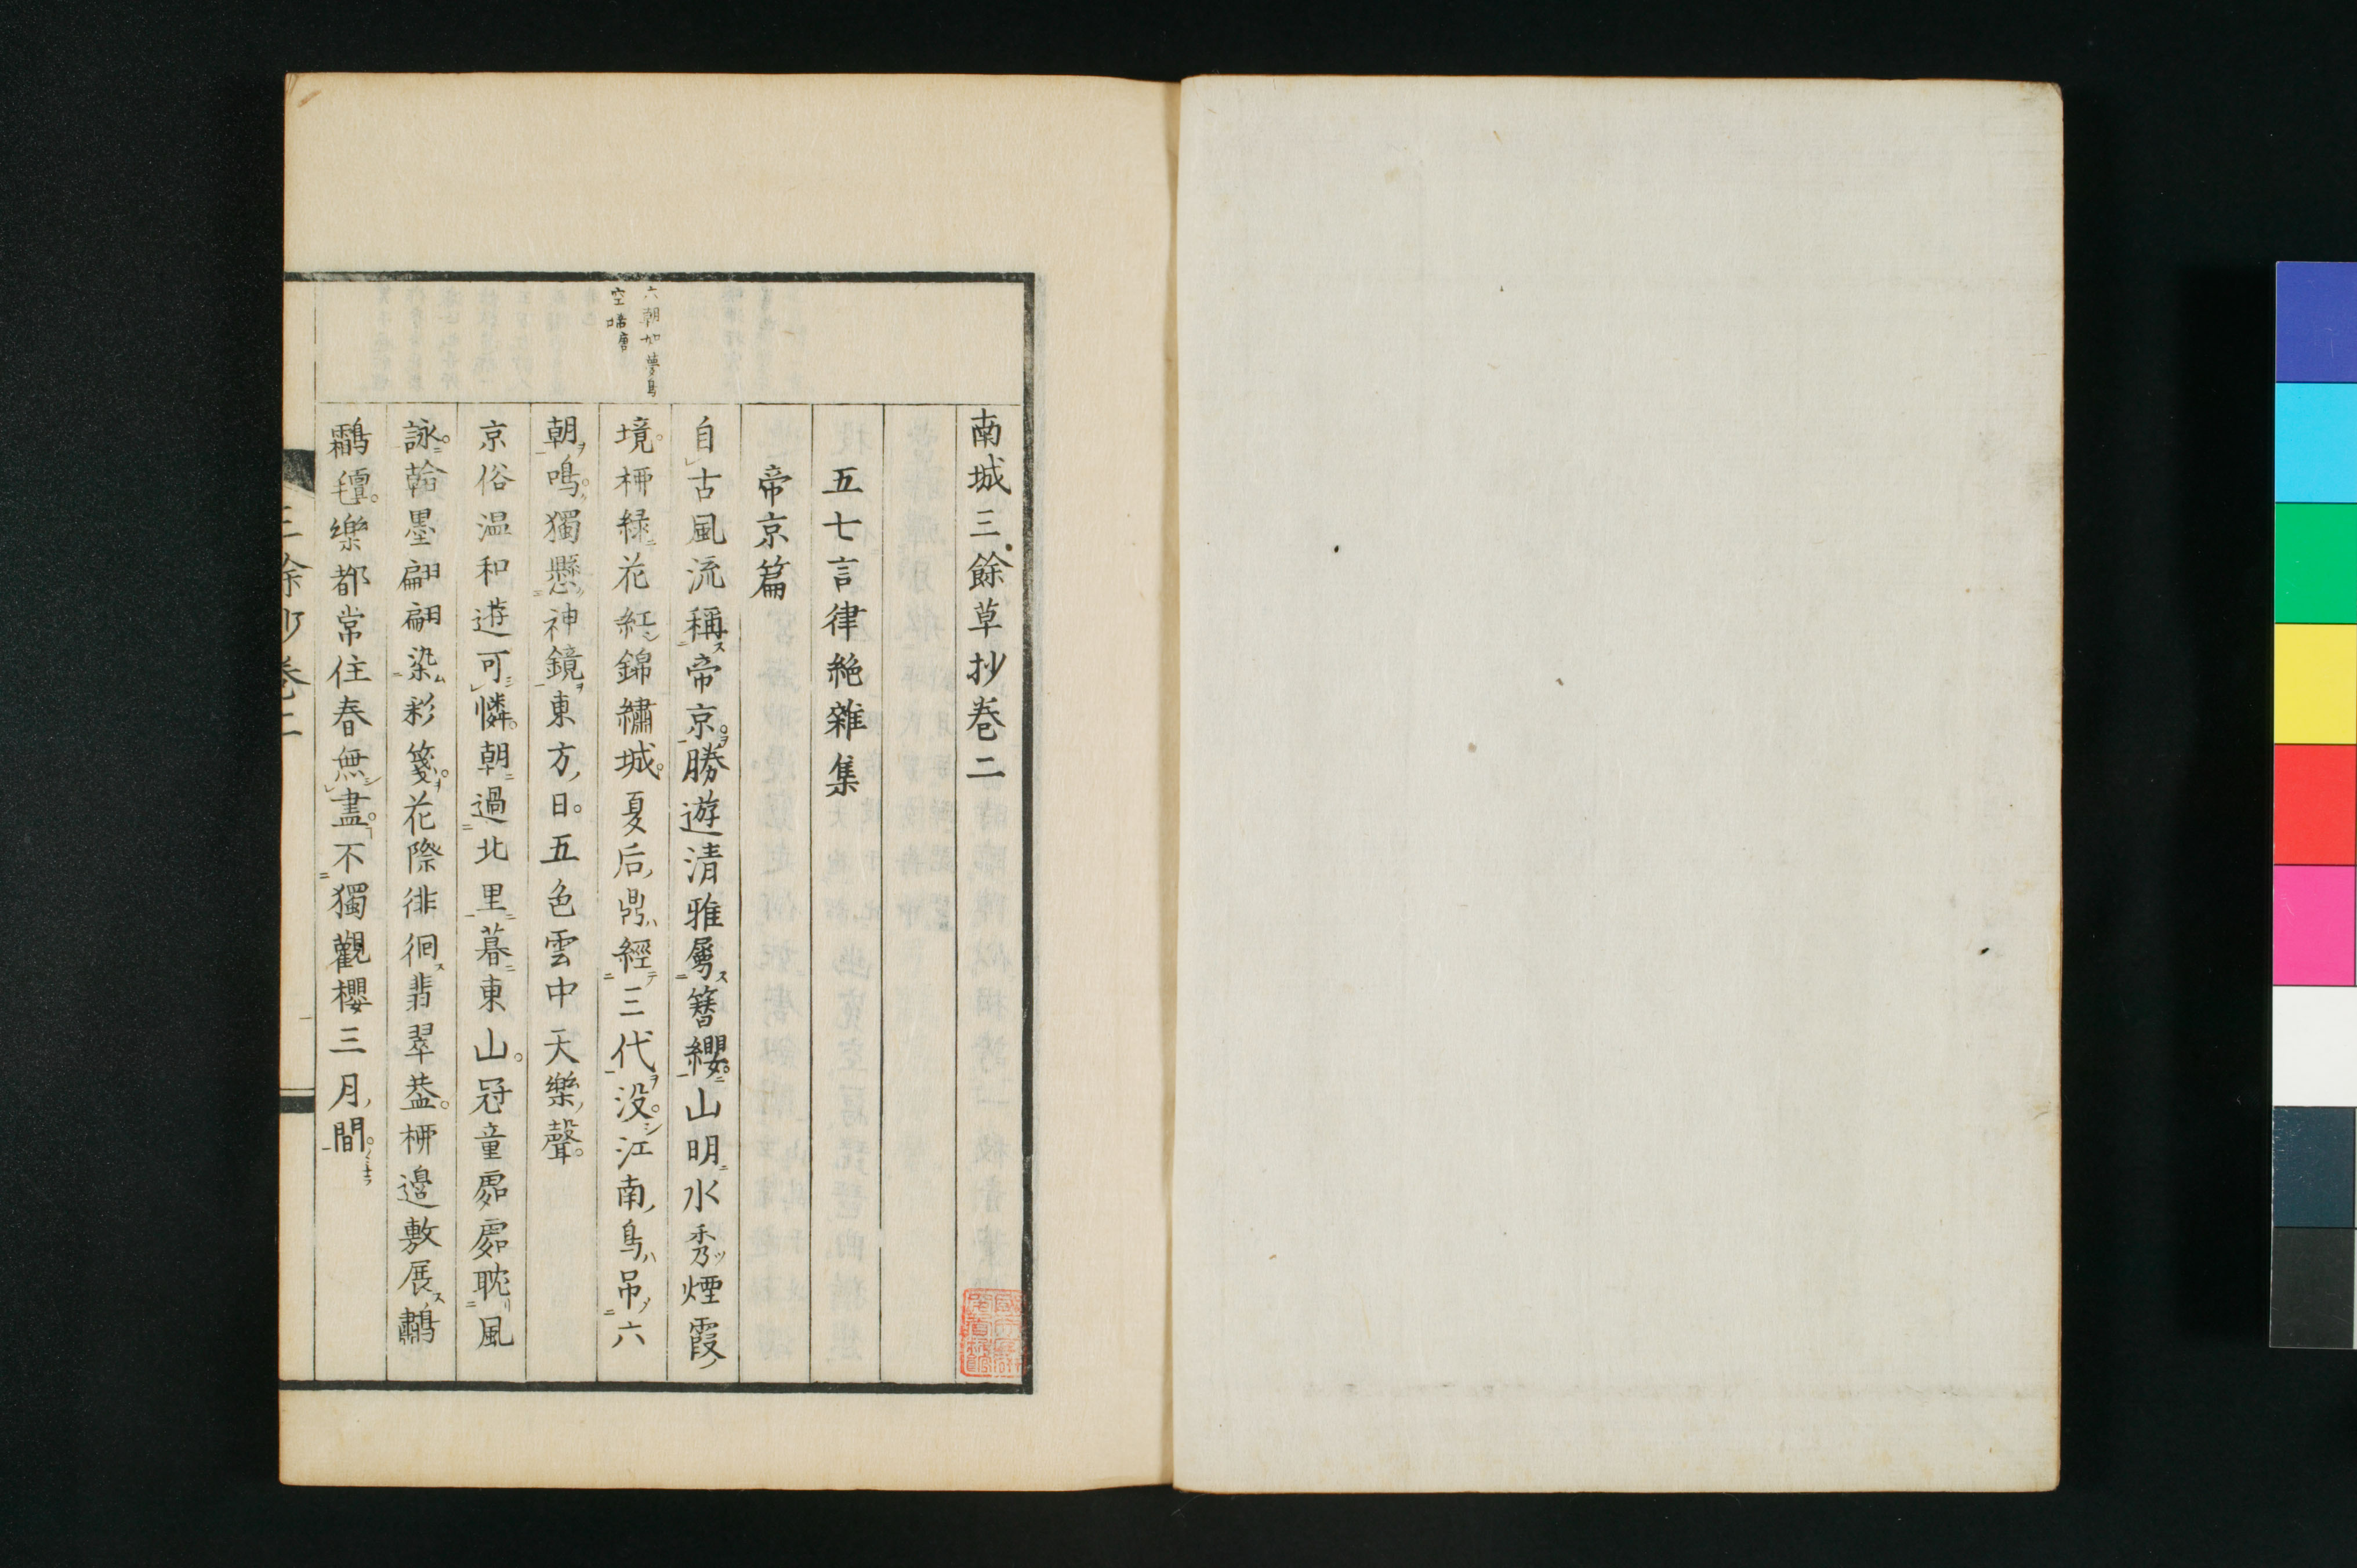 南城三餘草抄卷二
五七言律絶雜集
帝京篇
自古風流稱帝京勝遊清雅屬簪纓山明水秀煙霞
境桺緑花紅錦繡城夏后鼎經三代没江南鳥吊六
朝鳴獨懸神鏡東方日五色雲中天樂聲
京俗温和遊可憐朝過北里暮東山冠童處處耽風
詠翰墨翩翩染彩箋花際徘徊翡翠葢桺邊敷展鷫
鸘氊樂都常住春無盡不獨觀櫻三月間
六朝如夢鳥
空啼唐
三餘抄卷二